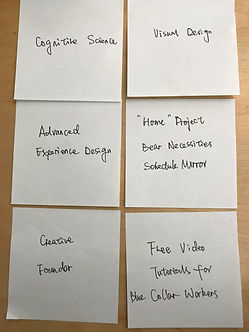 Cognitive Science
Visual Design
Advanced
Experience Design
"Home" Project
Bear Necessities
Schedule Mirror
Creative
Founder
Free Video
Tutorials for
Blue Collar Workers